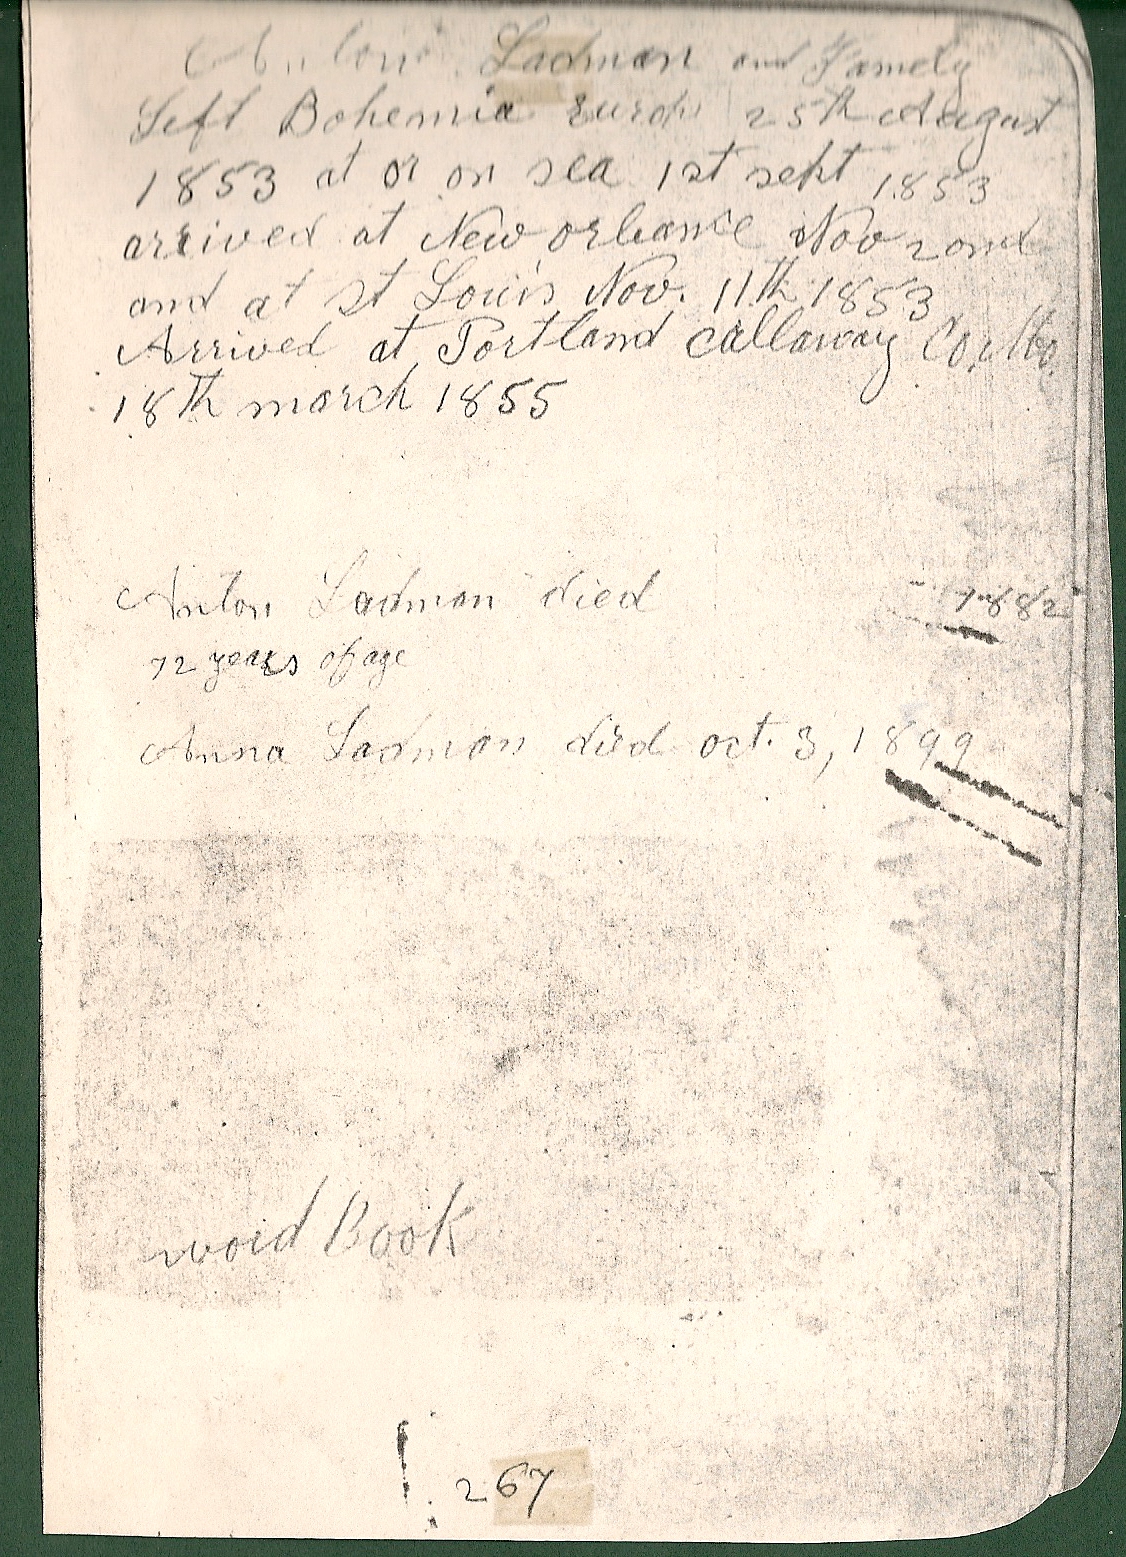 Anton Ladman and Famely
Left Bohemia Europ 25th August
1853 at or on sea 1st sept 1853
arrived at New orleance Nov 2ond
and at st Louis Nov. 11th 1853
Arrived at Portland Callaway Co, Mo.
18th march 1855
Anton Ladman died 1882
72 years of age
Anna Ladman died oct. 3, 1899
word Book
267